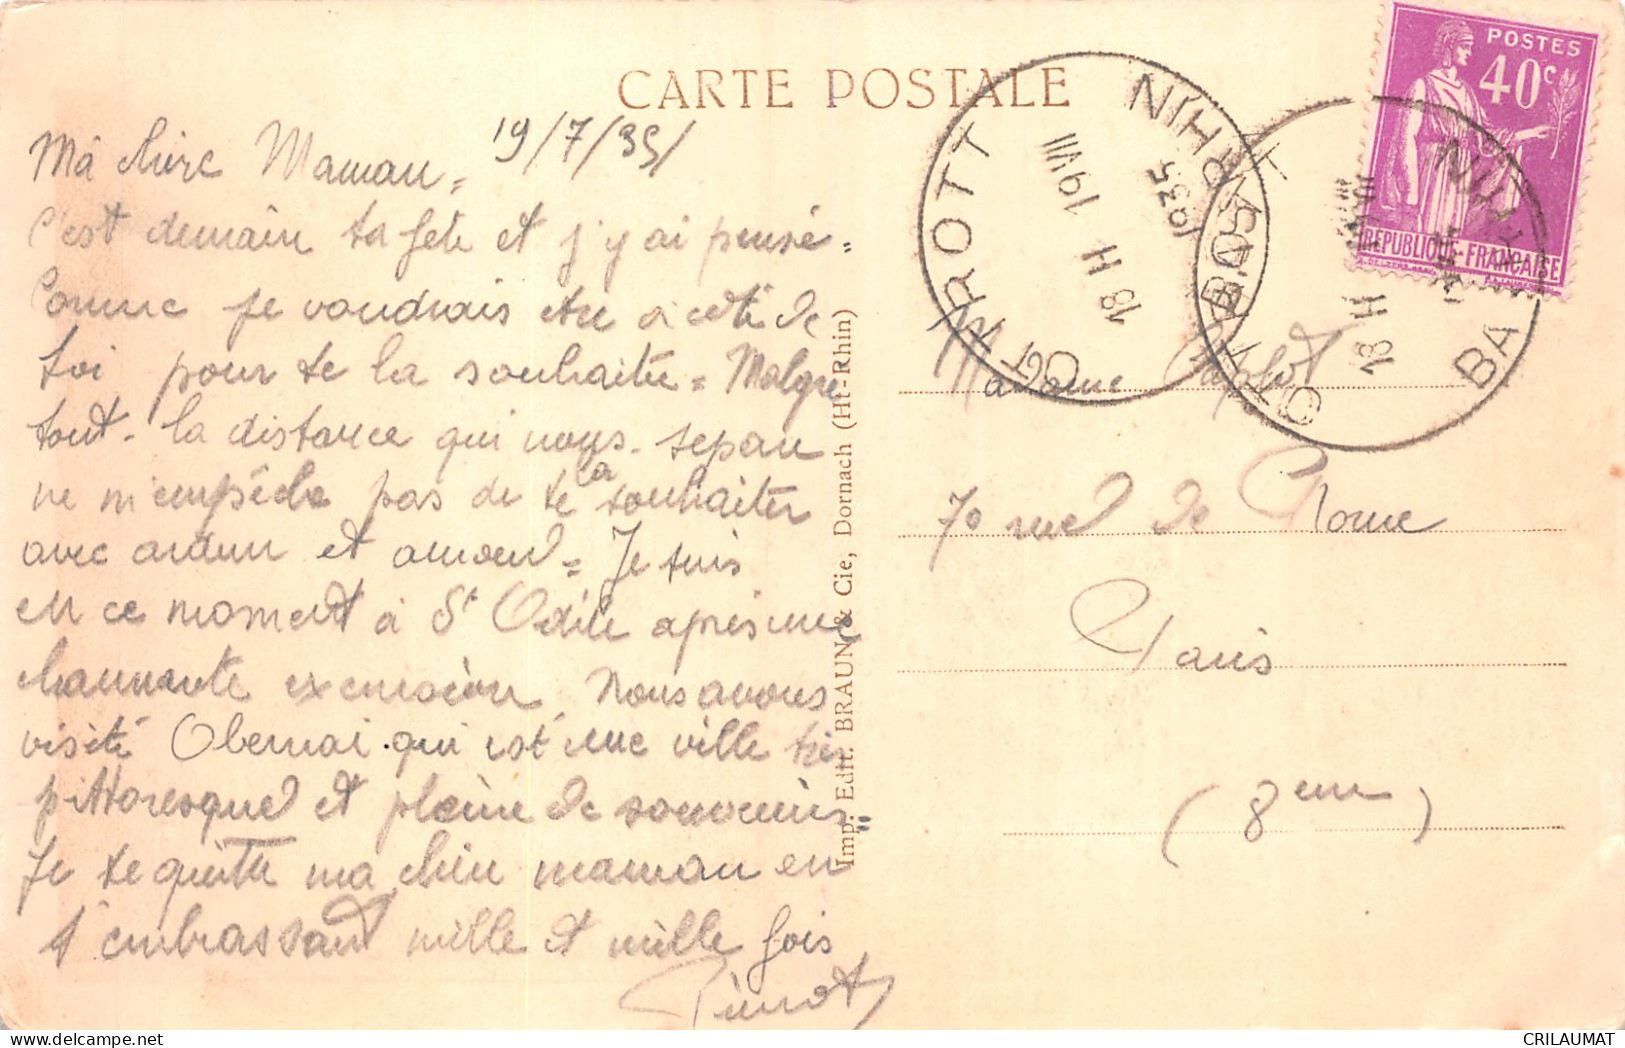 CARTE POSTALE
19/7/35/
Ma chère Maman =
C'est demain ta fête et j'y ai pensé =
Comme je voudrais etre à coté de
toi pour te la souhaiter = Malgre
tout - la distance qui nous - separe
ne m'empêche pas de te la souhaiter
avec ardeur et amour = Je suis
en ce moment à St Odile après une
charmante excursion. Nous avons
visité Obernai qui est une ville très
pittoresque et pleine de souvenirs
Je te quitte ma chère maman en
t'embrassant mille et mille fois
Pierrot
Imp. Edit. BRAUN & Cie, Dornach (Ht-Rhin)
POSTES
40c
REPUBLIQUE-FRANCAISE
OTTROTT
BAS RHIN
18 H 19 VII
1935
OTTROTT
BAS RHIN
18 H
Madame
70 rue de Rome
Paris
(8eme)
CRILAUMAT